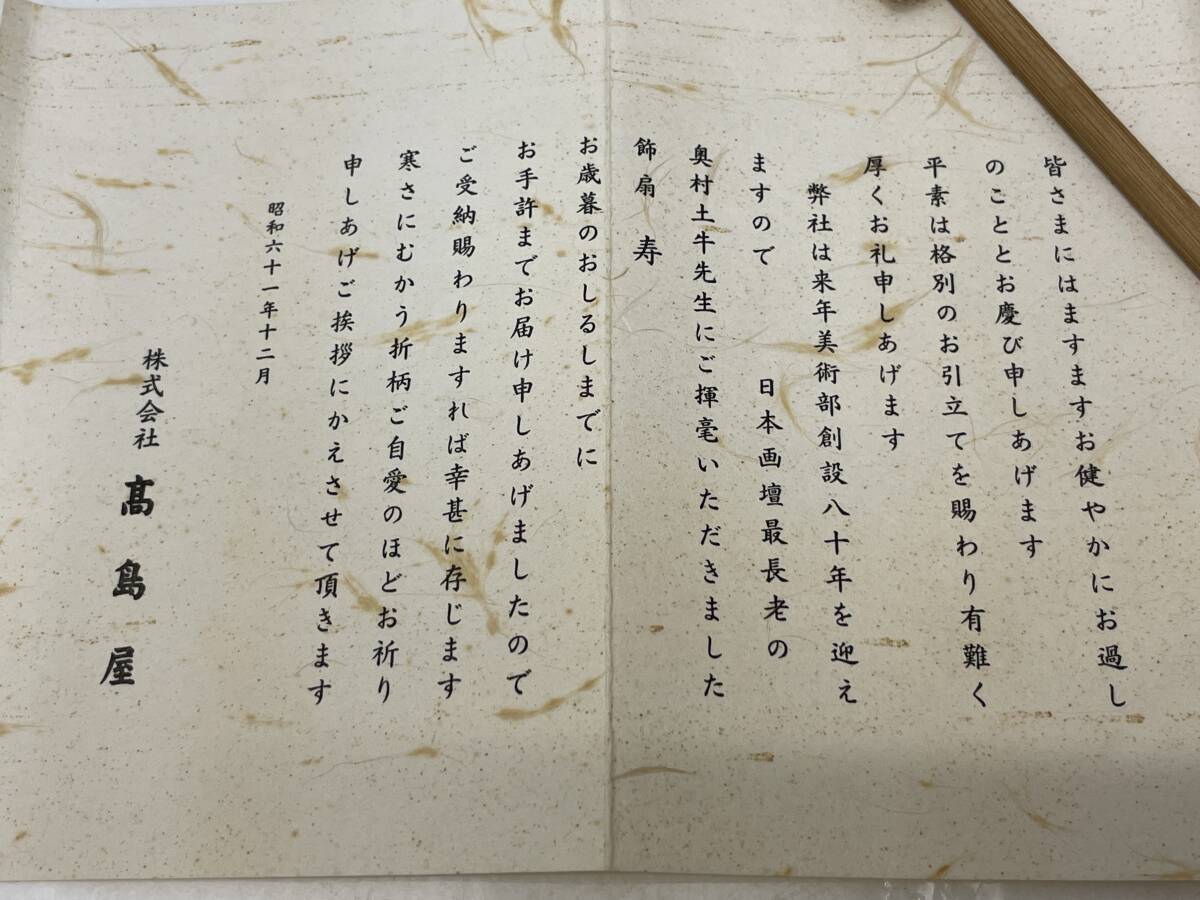 皆さまにはますますお健やかにお過し
のこととお慶び申しあげます
平素は格別のお引立てを賜わり有難く
厚くお礼申しあげます
弊社は来年美術部創設八十年を迎え
ますので　日本画壇最長老の
奥村土牛先生にご揮毫いただきました
飾扇　寿
お歳暮のおしるしまでに
お手許までお届け申しあげましたので
ご受納賜わりますれば幸甚に存じます
寒さにむかう折柄ご自愛のほどお祈り
申しあげご挨拶にかえさせて頂きます
昭和六十一年十二月
株式会社　髙島屋